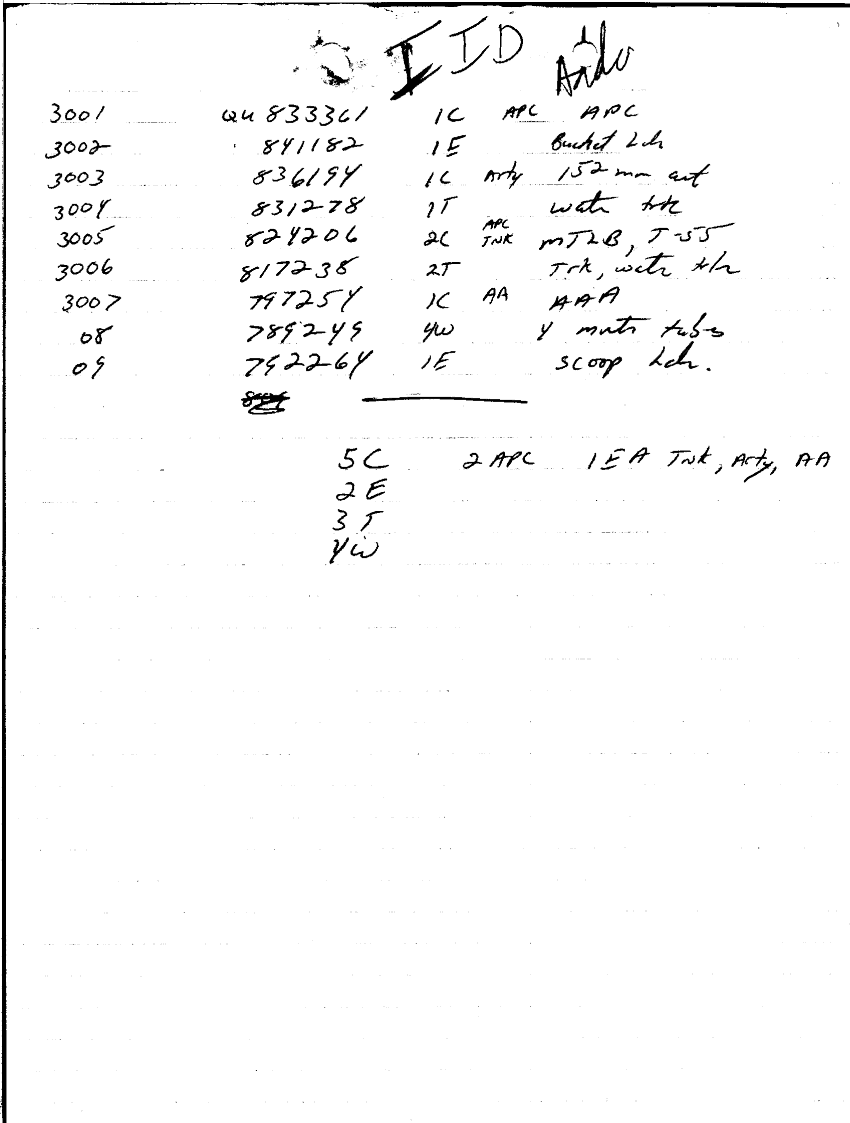 IID Ando
3001 QU 833361 1C APC APC
3002 841182 1E Bucket Ldr
3003 836194 1C Arty 152 mm art
3004 831278 1T watr trk
3005 824206 2C APC TNK MTLB, T-55
3006 817238 2T Trk, watr tlr
3007 797254 1C AA AAA
08 789249 4W 4 mortr tubes
09 792264 1E scoop Ldr.
5C 2 APC 1EA Tnk, Arty, AA
2E
3T
4W